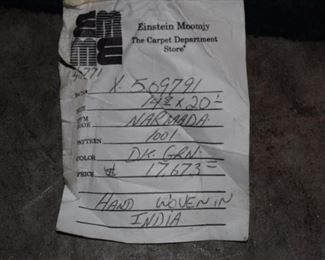 EM
ME
Einstein Moomjy
The Carpet Department
Store®
X-509791
14² x 20¹
NARMADA
1001
PATTERN
COLOR DK GRN.
PRICE $ 17,673=
HAND WOVEN IN
INDIA